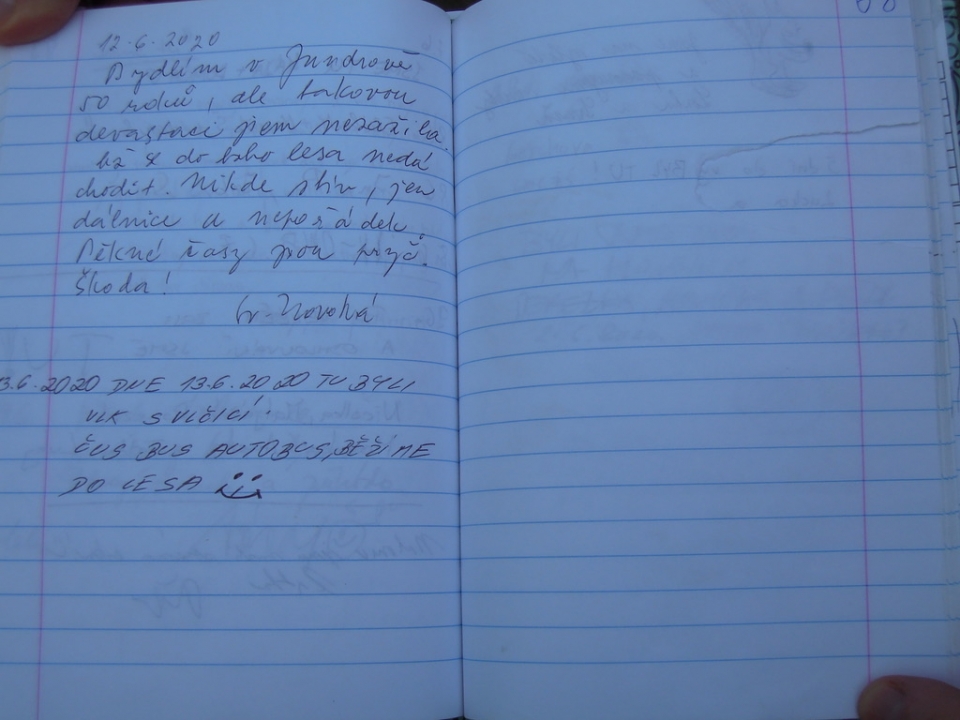 12.6.2020
Bydlím v Jundrově
50 roků, ale takovou
devastaci jsem nezažila.
Už se do toho lesa nedá
chodit. Nikde stín, jen
dálnice a nepořádek.
Pěkné časy jsou pryč.
Škoda!
Novotná
13.6.2020 DNE 13.6.2020 TU BYLI
VLK S VLČICÍ.
ČUS BUS AUTOBUS, BĚŽÍME
DO LESA